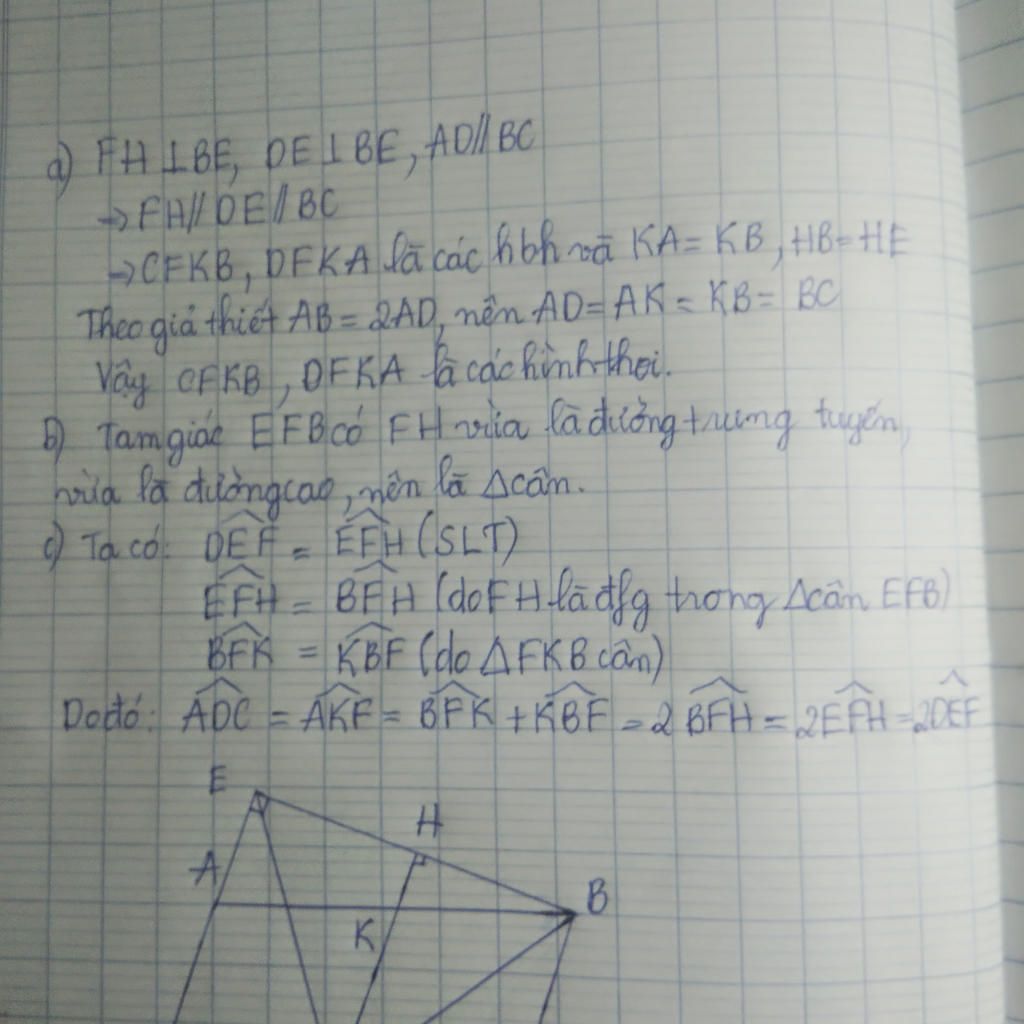 a) FH⊥BE, DE⊥BE, AD//BC
→ FH//DE//BC
→ CFKB, DFKA là các hbh và KA = KB, HB = HE
Theo giả thiết AB = 2AD, nên AD = AK = KB = BC
Vậy CFKB, DFKA là các hình thoi.
b) Tam giác EFB có FH vừa là đường trung tuyến,
vừa là đường cao, nên là Δcân.
c) Ta có: \widehat{DEF} = \widehat{EFH} (SLT)
\widehat{EFH} = \widehat{BFH} (do FH là đfg trong Δcân EFB)
\widehat{BFK} = \widehat{KBF} (do ΔFKB cân)
Do đó: \widehat{ADC} = \widehat{AKF} = \widehat{BFK} + \widehat{KBF} = 2\widehat{BFH} = 2\widehat{EFH} = 2\widehat{DEF}
E
H
A
B
K